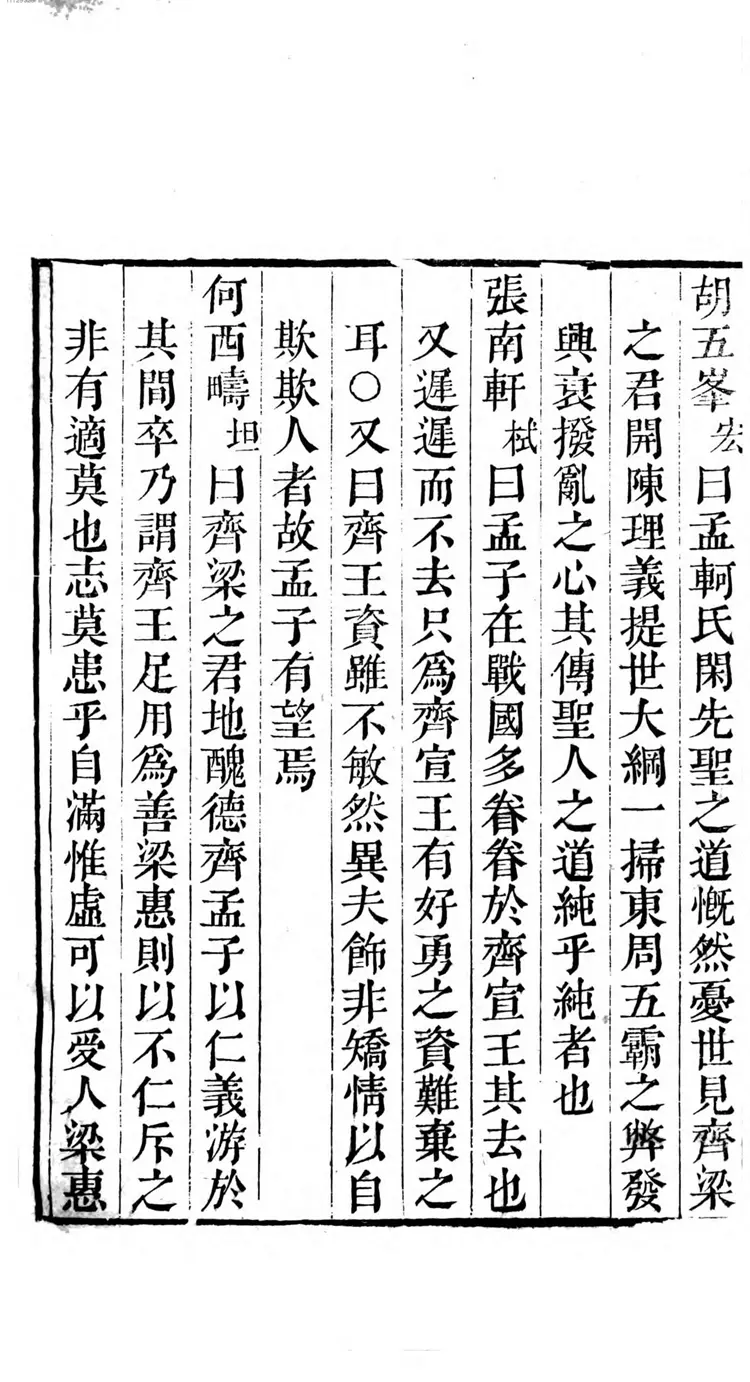 胡五峯宏曰孟軻氏閑先聖之道慨然憂世見齊梁
之君開陳理義提世大綱一掃東周五霸之弊發
興衰撥亂之心其傳聖人之道純乎純者也
張南軒栻曰孟子在戰國多眷眷於齊宣王其去也
又遲遲而不去只爲齊宣王有好勇之資難棄之
耳○又曰齊王資雖不敏然異夫飾非矯情以自
欺欺人者故孟子有望焉
何西疇坦曰齊梁之君地醜德齊孟子以仁義游於
其間卒乃謂齊王足用爲善梁惠則以不仁斥之
非有適莫也志莫患乎自滿惟虛可以受人梁惠